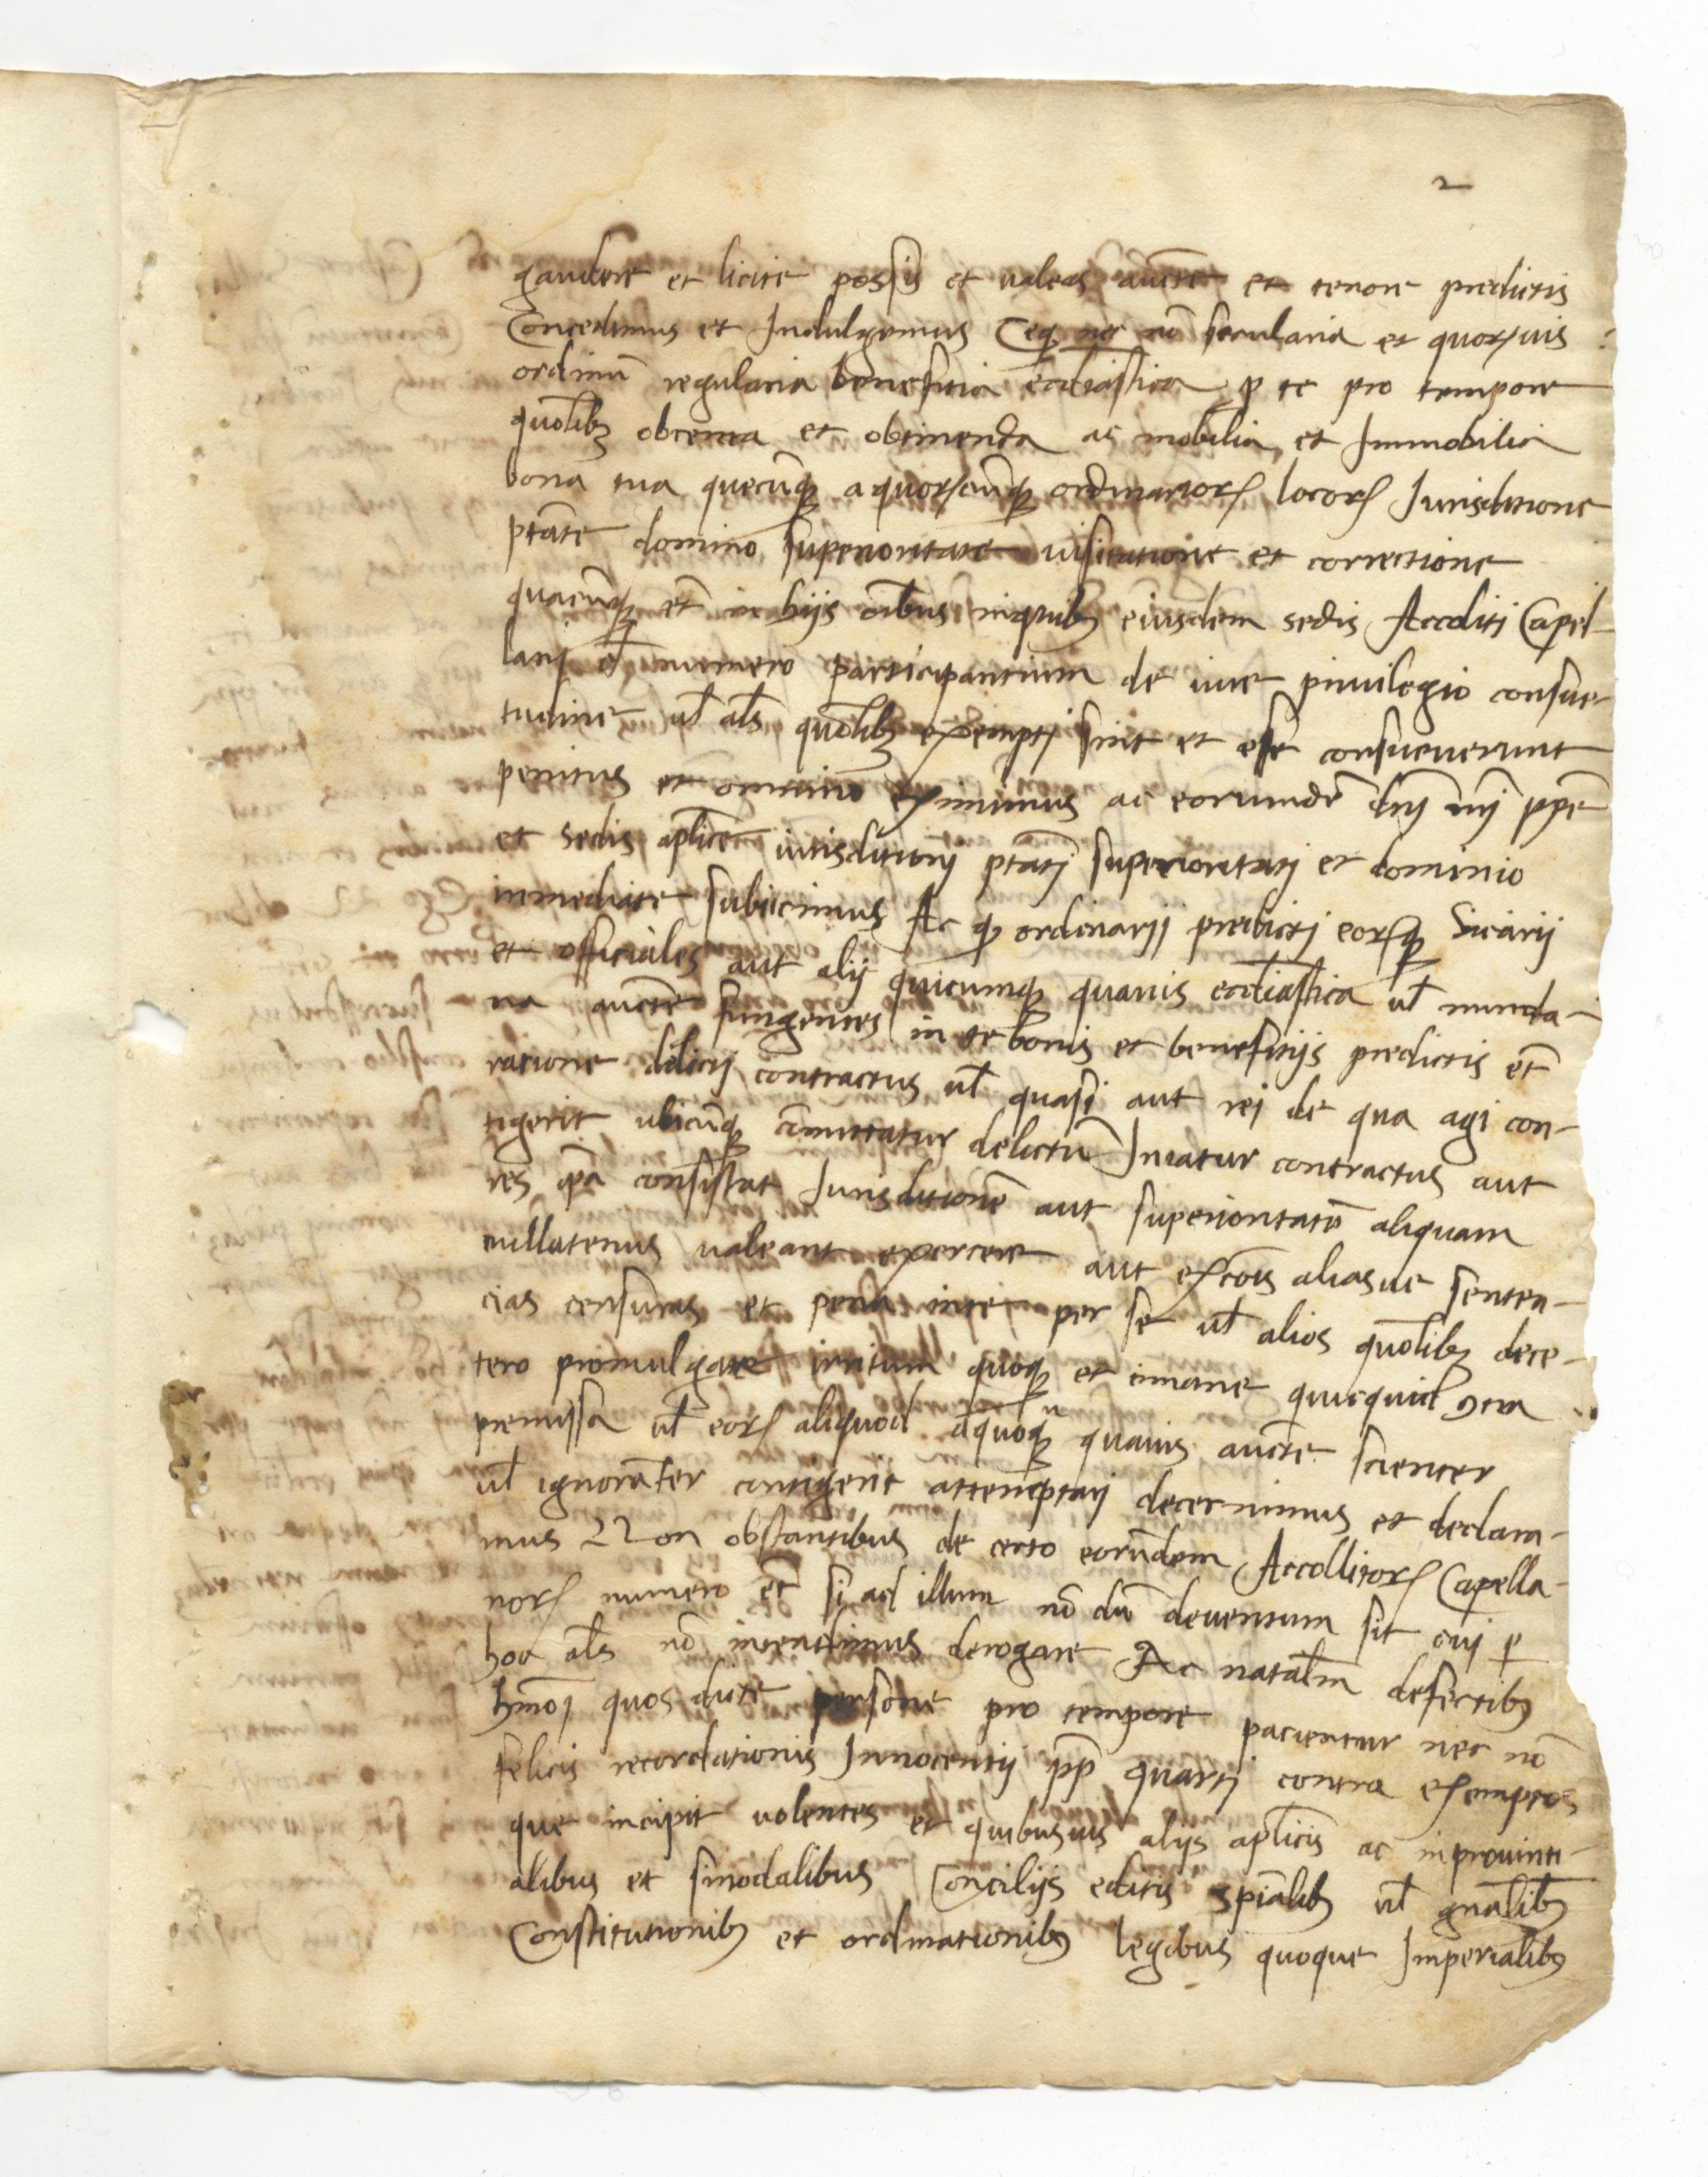 2
gaudere et licite possis et valeas aucte et tenore predictis
Concedimus et Indulgemus Teq nec nō secularia et quorūvis
ordinū regularia beneficia ecclīastica p te pro tempore
quolibꝫ obtenta et obtinenda ac mobilia et Immobilia
bona tua quecūqꝫ a quorūcūqꝫ ordinariorꝝ locorꝝ Jurisditione
ptāte domino superioritate visitatione et correctione
quacūqꝫ et in hijs oībus in quibꝫ eiusdem sedis Accoliti Capel-
lanj et numero participantium de iure privilegio consue-
tudine vl̄ als quolibꝫ exemptj sint et esse consueverunt
penitus et omnino eximimus ac eorumdē dnj nrj ppe
et sedis aplice iurisditionj ptātj superioritatj et dominio
inmediate subiicimus Ac qꝫ ordinarij predictj eorꝝqꝫ Vicarij
et officiales aut alij quicumqꝫ quavis ecclīastica vl̄ munda-
na aucte fungentes in te bonis et beneficijs predictis et
ratione delictj contractus vl̄ quasi aut rej de qua agi con-
tigerit ubicūqꝫ cōmittatur delictū Iniatur contractus aut
res ipa consistat Jurisditionē aut superioritatē aliquam
nullatenus valeant exercere aut excōis aliasve senten-
cias censuras et penā inte per se vl̄ alios quolibꝫ dece-
tero promulgare irritum quoqꝫ et innane quicquid ꝯtra
premissa vl̄ eorꝝ aliquod aquoqꝫ quavis aucte scienter
vl̄ ignorāter contigerit attemptarj decernimus et declara-
mus Non obstantibus de certo eorūdem Accollitorꝝ Capella-
norꝝ numero et si ad illum nō dū deventum sit cuj p
hoc als nō intendimus derogare Ac natalīm defectibꝫ
hmōj quos dicte persone pro tempore pacientur nec nō
felicis recordationis Innocentij pp quartj contra exemptos
que incipit volentes et quibusvis alijs aplicis ac in provinti-
alibus et sinodalibus Concilijs editis spialibꝫ vl̄ gnalibꝫ
Constitutionibꝫ et ordinationibꝫ legibus quoque Imperialibꝫ